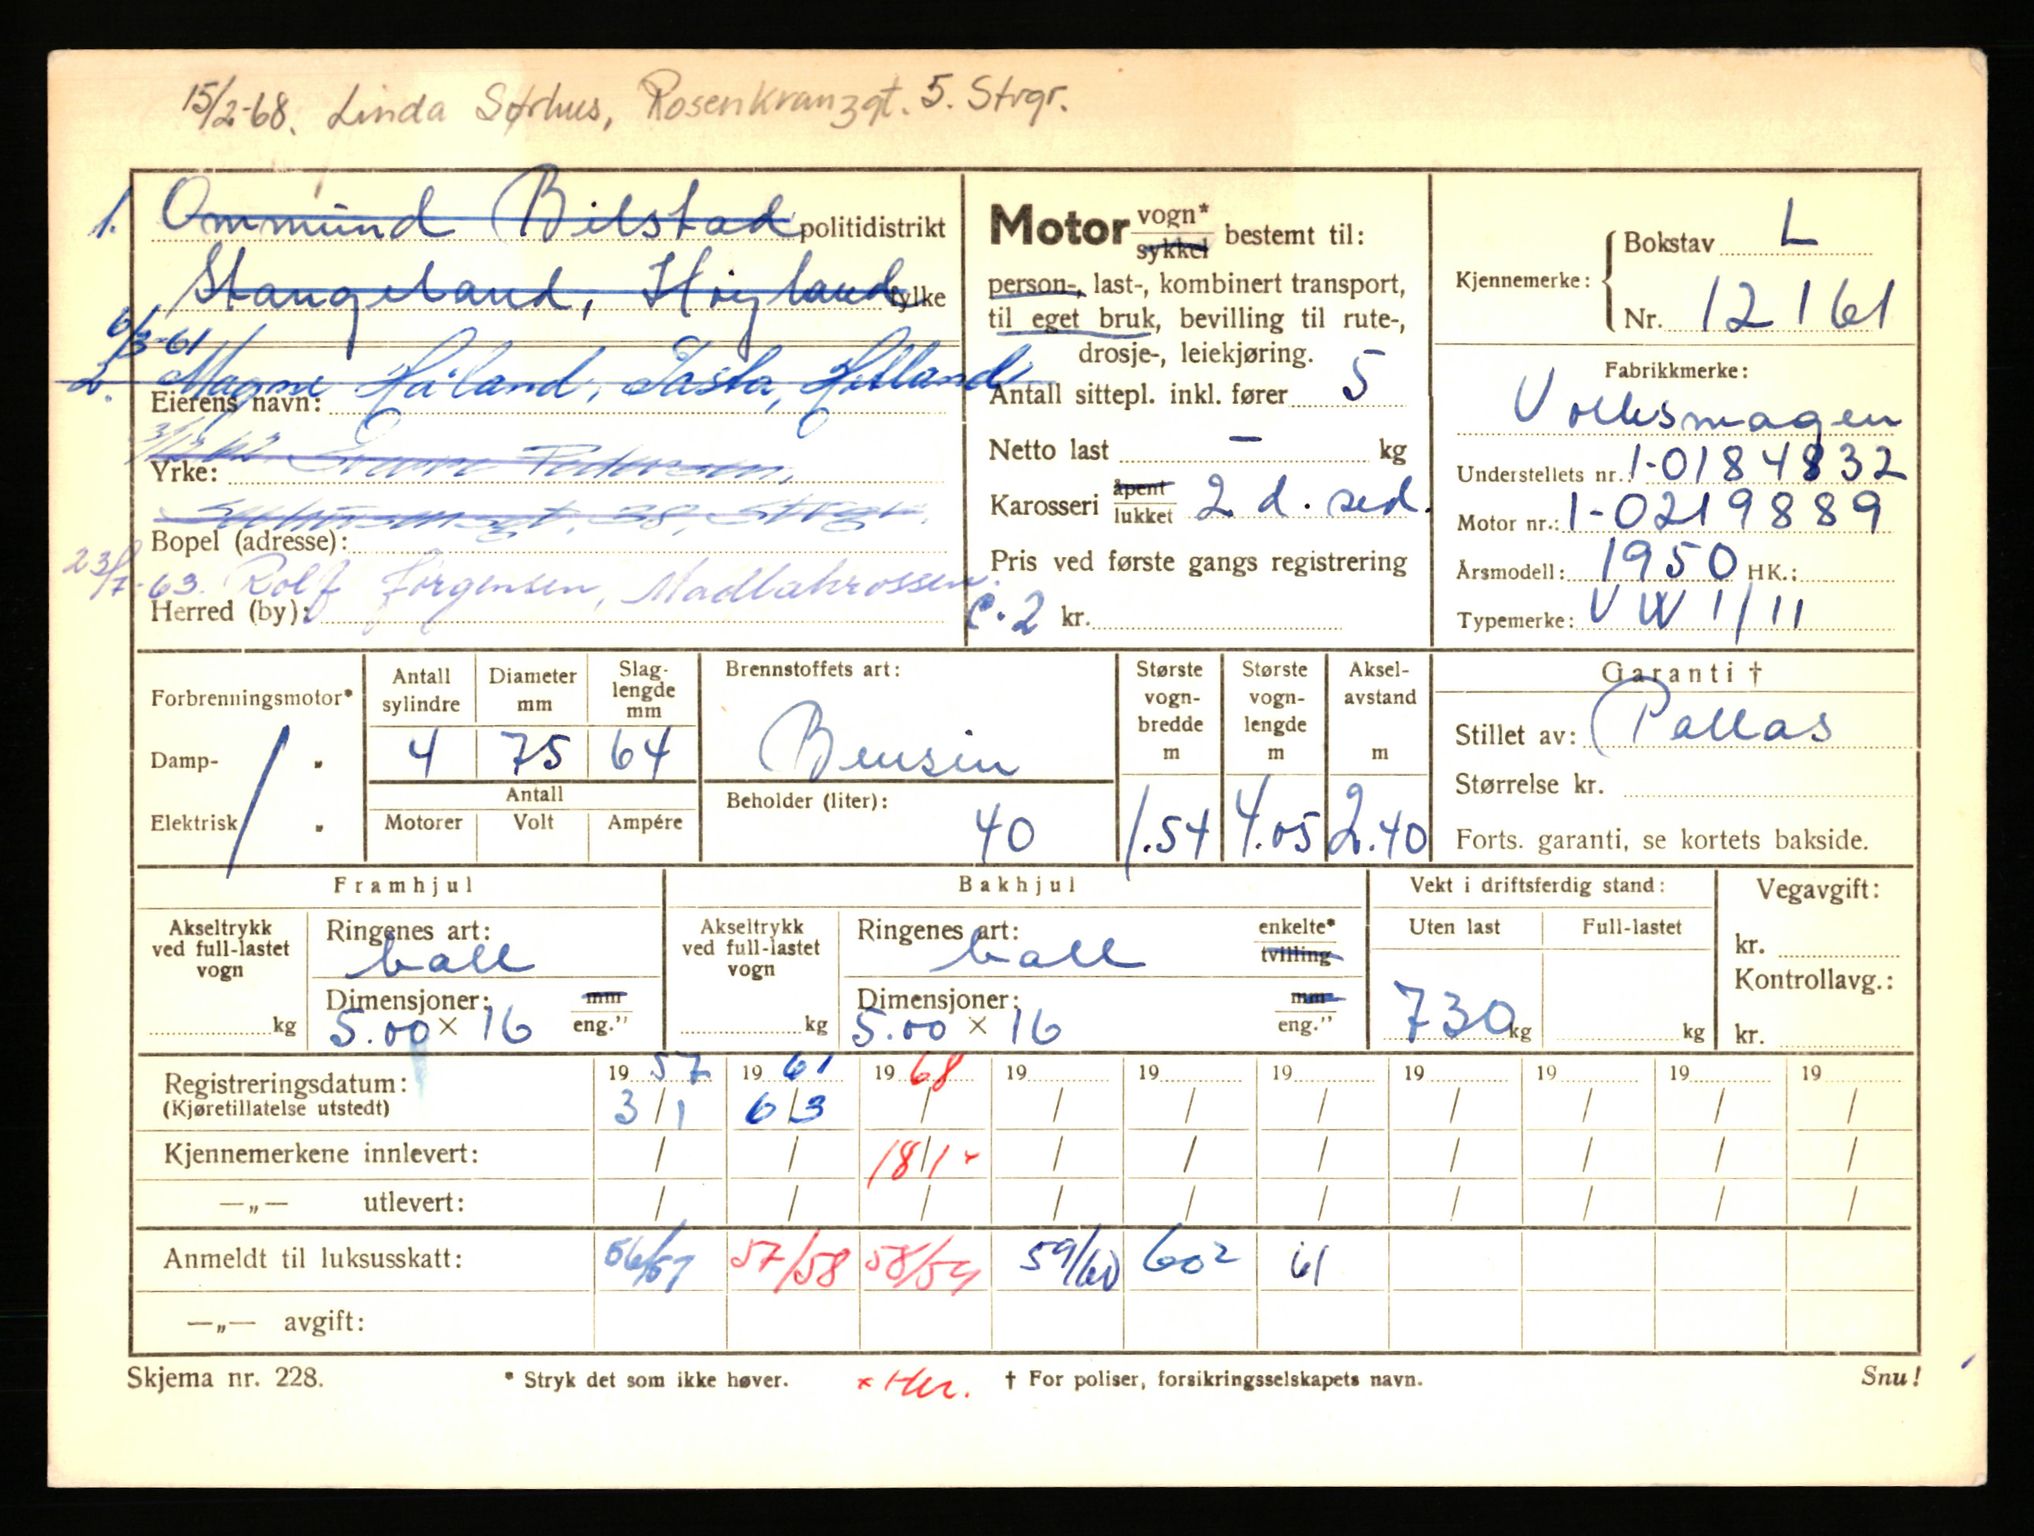 15/2-68. Linda Sørhus, Rosenkranzgt. 5. Strgr.
1. Ommund Bilstad politidistrikt
Stangeland, Høyland fylke
6/3-61
2. Magne Håland, Tasta, Hetland
Eierens navn:
3/12-62 Pedersen,
Yrke:
38, Strgr.
Bopel (adresse):
23/7-63. Rolf Jørgensen, Madlakrossen.
Herred (by):
Motor vogn* sykkel bestemt til:
person-, last-, kombinert transport,
til eget bruk, bevilling til rute-,
drosje-, leiekjøring.
Antall sittepl. inkl. fører 5
Netto last — kg
Karosseri åpent lukket 2 d. sed.
Pris ved første gangs registrering
c.2 kr.
Kjennemerke: Bokstav L
Nr. 12161
Fabrikkmerke:
Volkswagen
Understellets nr.: 1-0184832
Motor nr.: 1-0219889
Årsmodell: 1950 HK.:
Typemerke: VW 1/11
Forbrenningsmotor*
Damp- "
Elektrisk "
Antall sylindre Diameter mm Slaglengde mm
4 75 64
Antall
Motorer Volt Ampére
Brennstoffets art:
Bensin
Beholder (liter):
40
Største vognbredde m Største vognlengde m Akselavstand m
1.54 4.05 2.40
Garanti †
Stillet av: Pallas
Størrelse kr.
Forts. garanti, se kortets bakside.
Framhjul
Akseltrykk ved full-lastet vogn
kg
Ringenes art:
ball
Dimensjoner: mm
5.00 × 16 eng."
Bakhjul
Akseltrykk ved full-lastet vogn
kg
Ringenes art: enkelte*
ball tvilling
Dimensjoner: mm
5.00 × 16 eng."
Vekt i driftsferdig stand:
Uten last Full-lastet
730 kg kg
Vegavgift:
kr.
Kontrollavg.:
kr.
Registreringsdatum: 19 57 19 61 19 68 19 19 19 19 19 19 19
(Kjøretillatelse utstedt) 3/1 6/3 / / / / / / / /
Kjennemerkene innlevert: / / 18/1 × / / / / / / /
—„— utlevert: / / / / / / / / / /
Anmeldt til luksusskatt: 56/57 57/58 58/59 59/60 60² 61
—„— avgift:
Skjema nr. 228. * Stryk det som ikke høver. × Her. † For poliser, forsikringsselskapets navn. Snu!